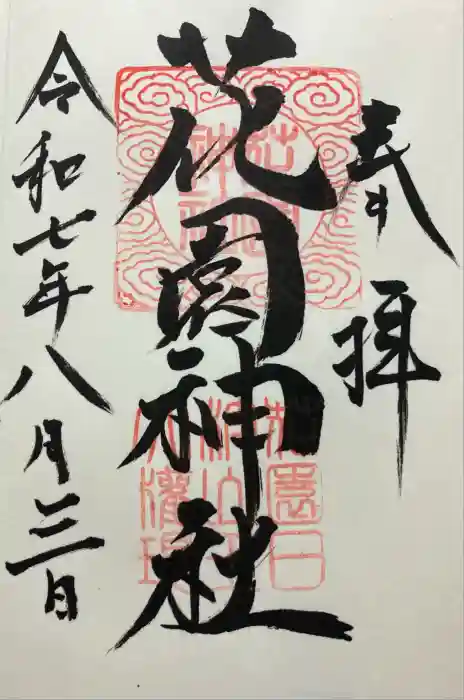 奉拝
花園神社
令和七年八月三日